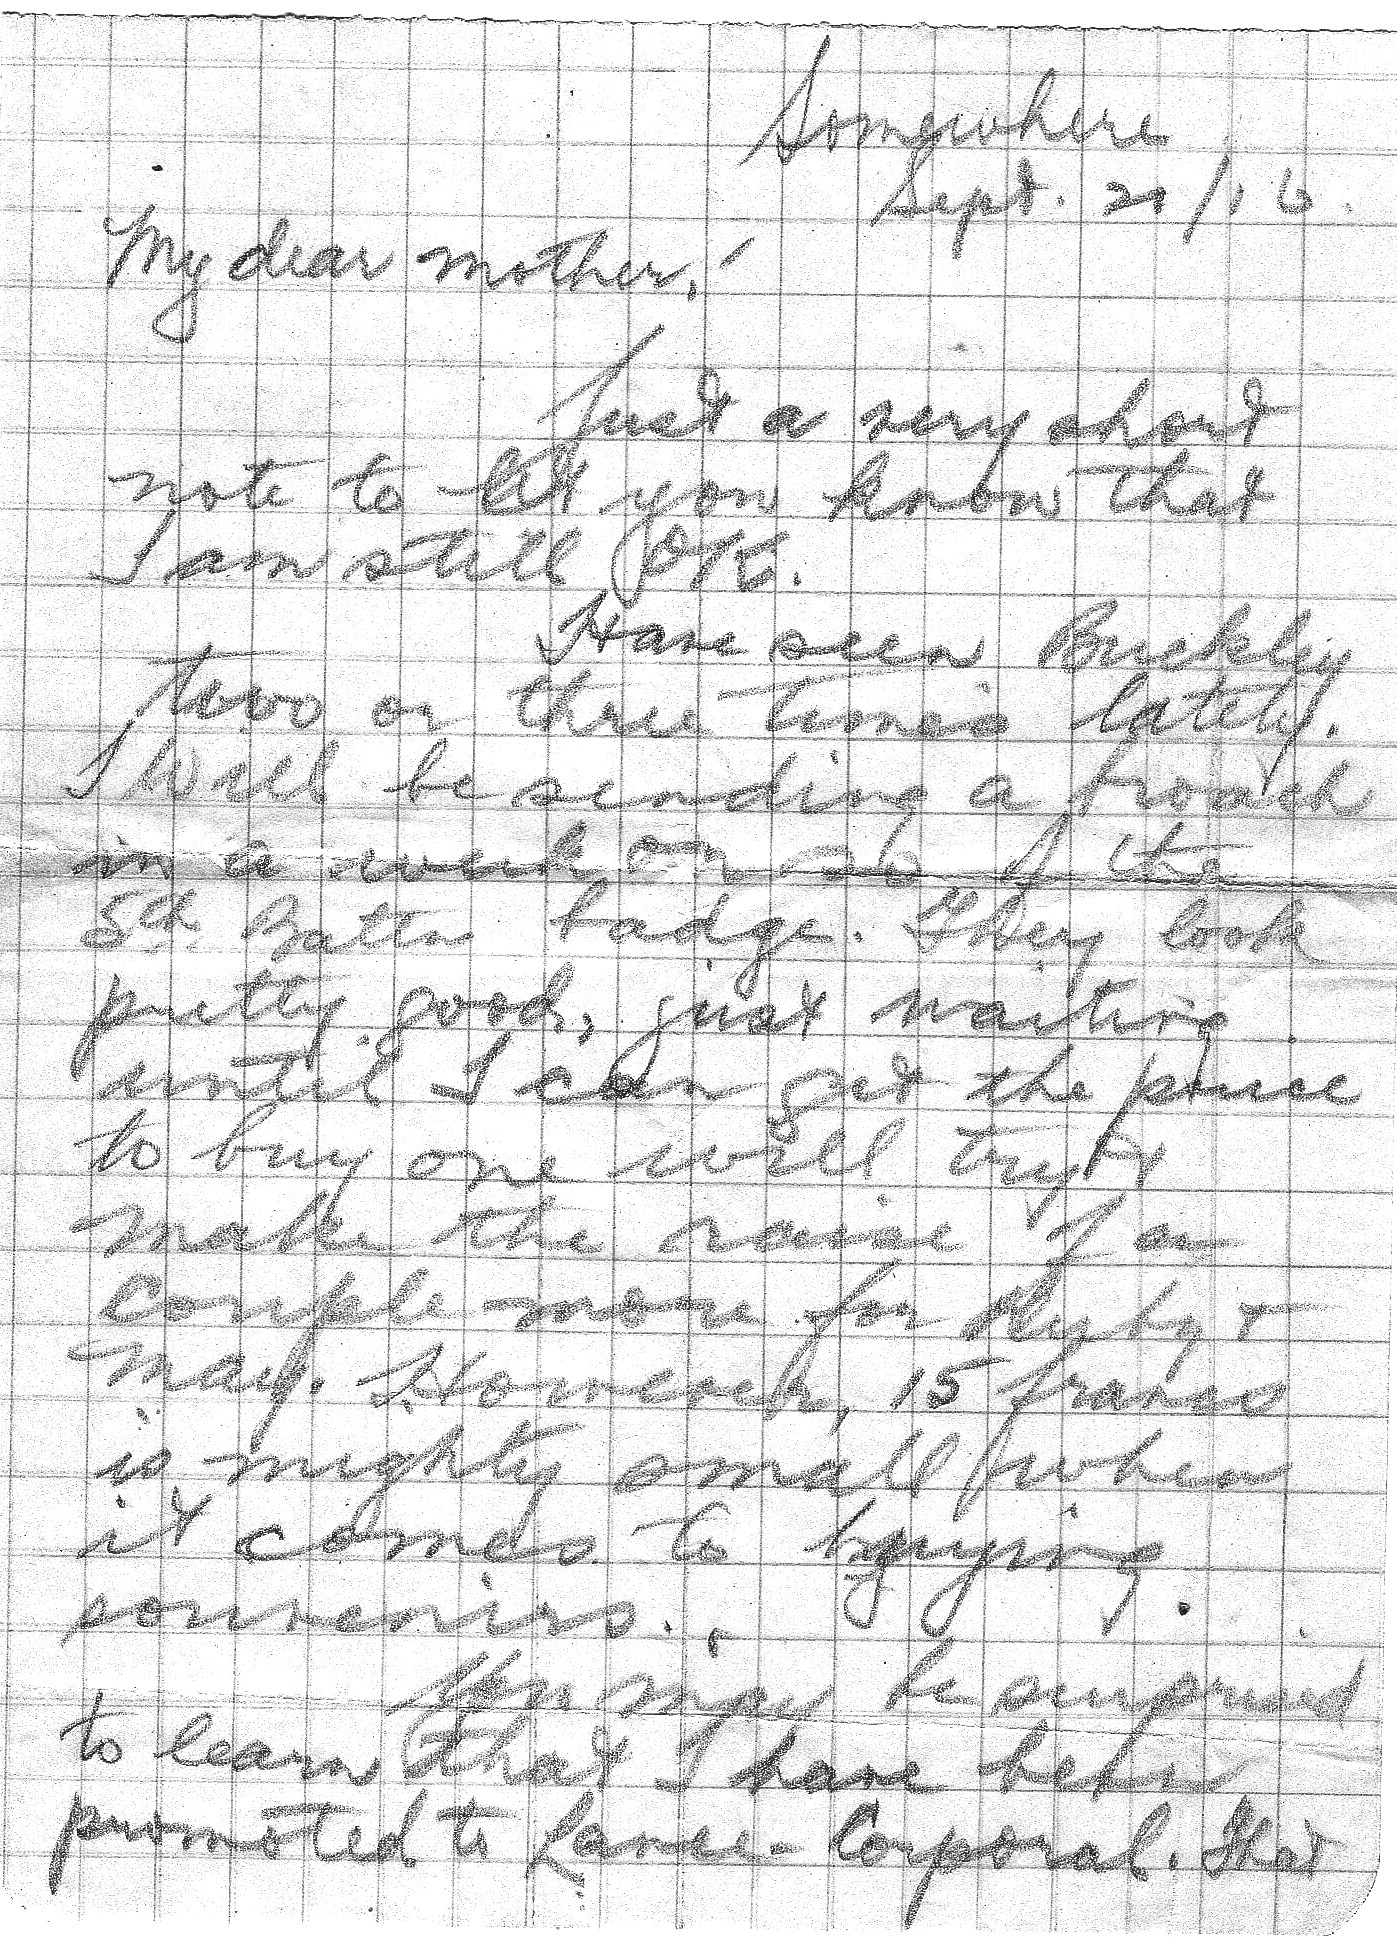 Somewhere
Sept. 21/16.
My dear mother,
Just a very short
note to let you know that
I am still OK.
Have seen Buckley
two or three times lately.
I will be sending a broach
in a week or so of the
5th Battn badge. They look
pretty good, just waiting
until I can get the price
to buy one will try &
make the raise of a
couple more for Ruby &
May. However, 15 francs
is mighty small when
it comes to buying
souvenirs.
You may be surprised
to learn that I have been
promoted to Lance-Corporal. That